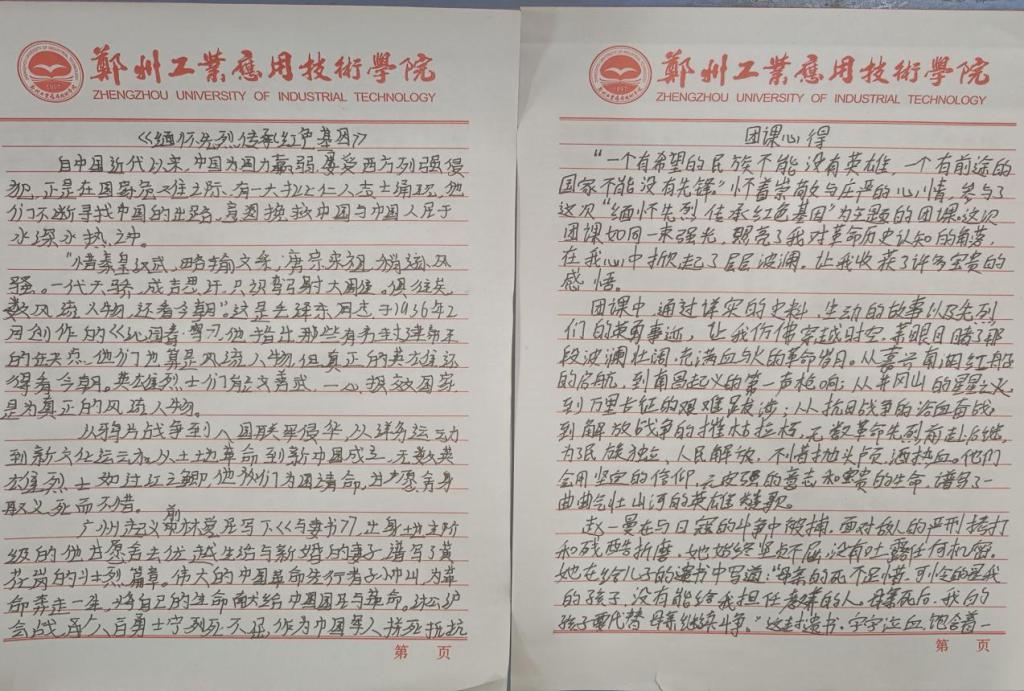 鄭州工業應用技術學院
ZHENGZHOU UNIVERSITY OF INDUSTRIAL TECHNOLOGY
《缅怀先烈传承红色基因》
自中国近代以来,中国为国力羸弱,屡受西方列强侵
犯,正是在国家危亡之际,有一大批仁人志士涌现,他
们不断寻找中国的出路,意图挽救中国与中国人民于
水深火热之中。
"惜秦皇汉武,略输文采,唐宗宋祖,稍逊风
骚。一代天骄,成吉思汗,只识弯弓射大雕,俱往矣,
数风流人物,还看今朝。"这是毛泽东同志于1936年2
月创作的《沁园春·雪》,他指出那些有
的缺点,他们也算是风流人物,但真正的英雄还
得看今朝。英雄烈士们 一心报效国家
是为真正的风流人物。
从鸦片战争到八国联军侵华,从洋务运动
到新文化运动,从土地革命到新中国成立,无数英
雄烈士如过江之鲫,他们为国请命, 愿舍身
取义死而不惜。
广州起义前林觉民写下《与妻书》,出身地主阶
级的他 愿舍去优越生活与新婚的妻子,谱写了黄
花岗的壮烈篇章。伟大的中国革命先行者孙中山,为革
命奔走一生,将自己的生命献给中国国民与革命。淞沪
会战,八百勇士宁死不屈,作为中国军人拼死抵抗
第 页
鄭州工業應用技術學院
ZHENGZHOU UNIVERSITY OF INDUSTRIAL TECHNOLOGY
团课心得
"一个有希望的民族不能没有英雄,一个有前途的
国家不能没有先锋"怀着崇敬与庄严的心情,参与了
这次"缅怀先烈 传承红色基因"为主题的团课。这次
团课如同一束强光,照亮了我对革命历史认知的角落,
在我心中掀起了层层波澜,让我收获了许多宝贵的
感悟。
团课中,通过详实的史料、生动的故事以及先烈
们的英勇事迹,让我仿佛穿越时空,亲眼目睹了那
段波澜壮阔、充满血与火的革命岁月。从嘉兴南湖红船
的启航,到南昌起义的第一声枪响;从井冈山的星星之火,
到万里长征的艰难跋涉;从抗日战争的浴血奋战,
到解放战争的摧枯拉朽,无数革命先烈前赴后继,
为了民族独立、人民解放,不惜抛头颅、洒热血。他们
用坚定的信仰、顽强的意志和宝贵的生命,谱写了一
曲曲气壮山河的英雄赞歌。
赵一曼在与日寇的斗争中被捕,面对敌人的严刑拷打
和残酷折磨,她始终坚贞不屈,没有吐露任何机密。
她在给儿子的遗书中写道:"母亲的死不足惜,可怜的是我
的孩子,没有能给我担任教养的人。母亲死后,我的
孩子要代替母亲继续斗争。"这封遗书,字字泣血,饱含着一
第 页